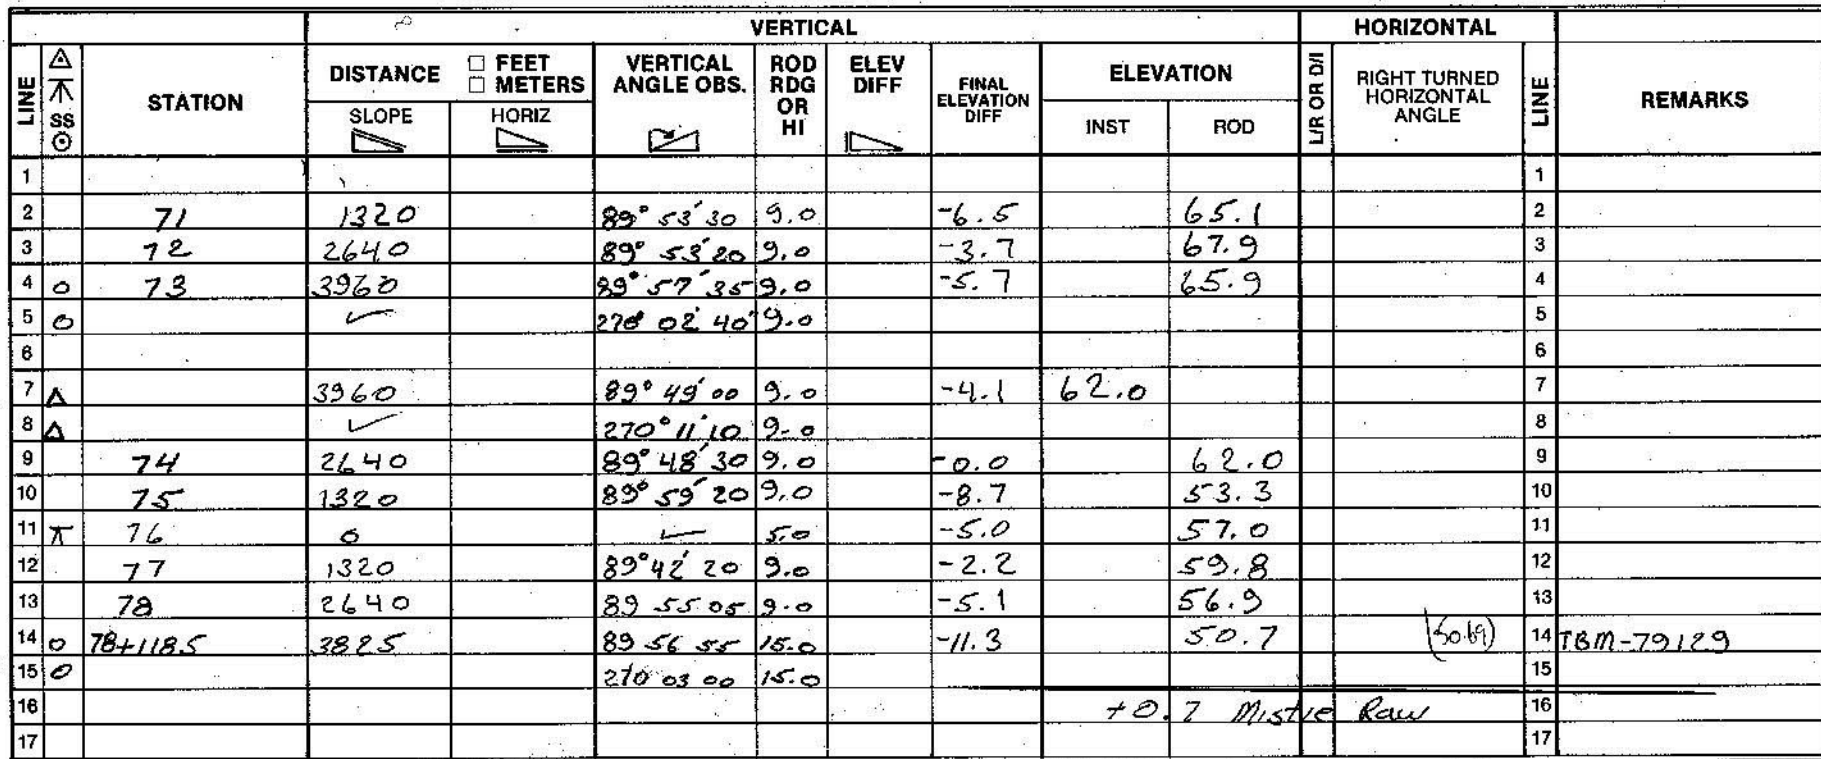 VERTICAL HORIZONTAL
LINE SS STATION DISTANCE FEET METERS VERTICAL ANGLE OBS. ROD RDG OR HI ELEV DIFF FINAL ELEVATION DIFF ELEVATION L/R OR D/I RIGHT TURNED HORIZONTAL ANGLE LINE REMARKS
SLOPE HORIZ INST ROD
1 1
2 71 1320 89° 53' 30 9.0 -6.5 65.1 2
3 72 2640 89° 53' 20 9.0 -3.7 67.9 3
4 o 73 3960 89° 57' 35 9.0 -5.7 65.9 4
5 o ✓ 270° 02' 40" 9.0 5
6 6
7 Δ 3960 89° 49' 00 9.0 -4.1 62.0 7
8 Δ ✓ 270° 11' 10 9.0 8
9 74 2640 89° 48' 30 9.0 -0.0 62.0 9
10 75 1320 89° 59' 20 9.0 -8.7 53.3 10
11 76 0 ✓ 5.0 -5.0 57.0 11
12 77 1320 89° 42' 20 9.0 -2.2 59.8 12
13 78 2640 89 55 05 9.0 -5.1 56.9 13
14 o 78+1185 3825 89 56 55 15.0 -11.3 50.7 (50.69) 14 TBM-79129
15 o 270 03 00 15.0 15
16 +0.7 Mistie Raw 16
17 17